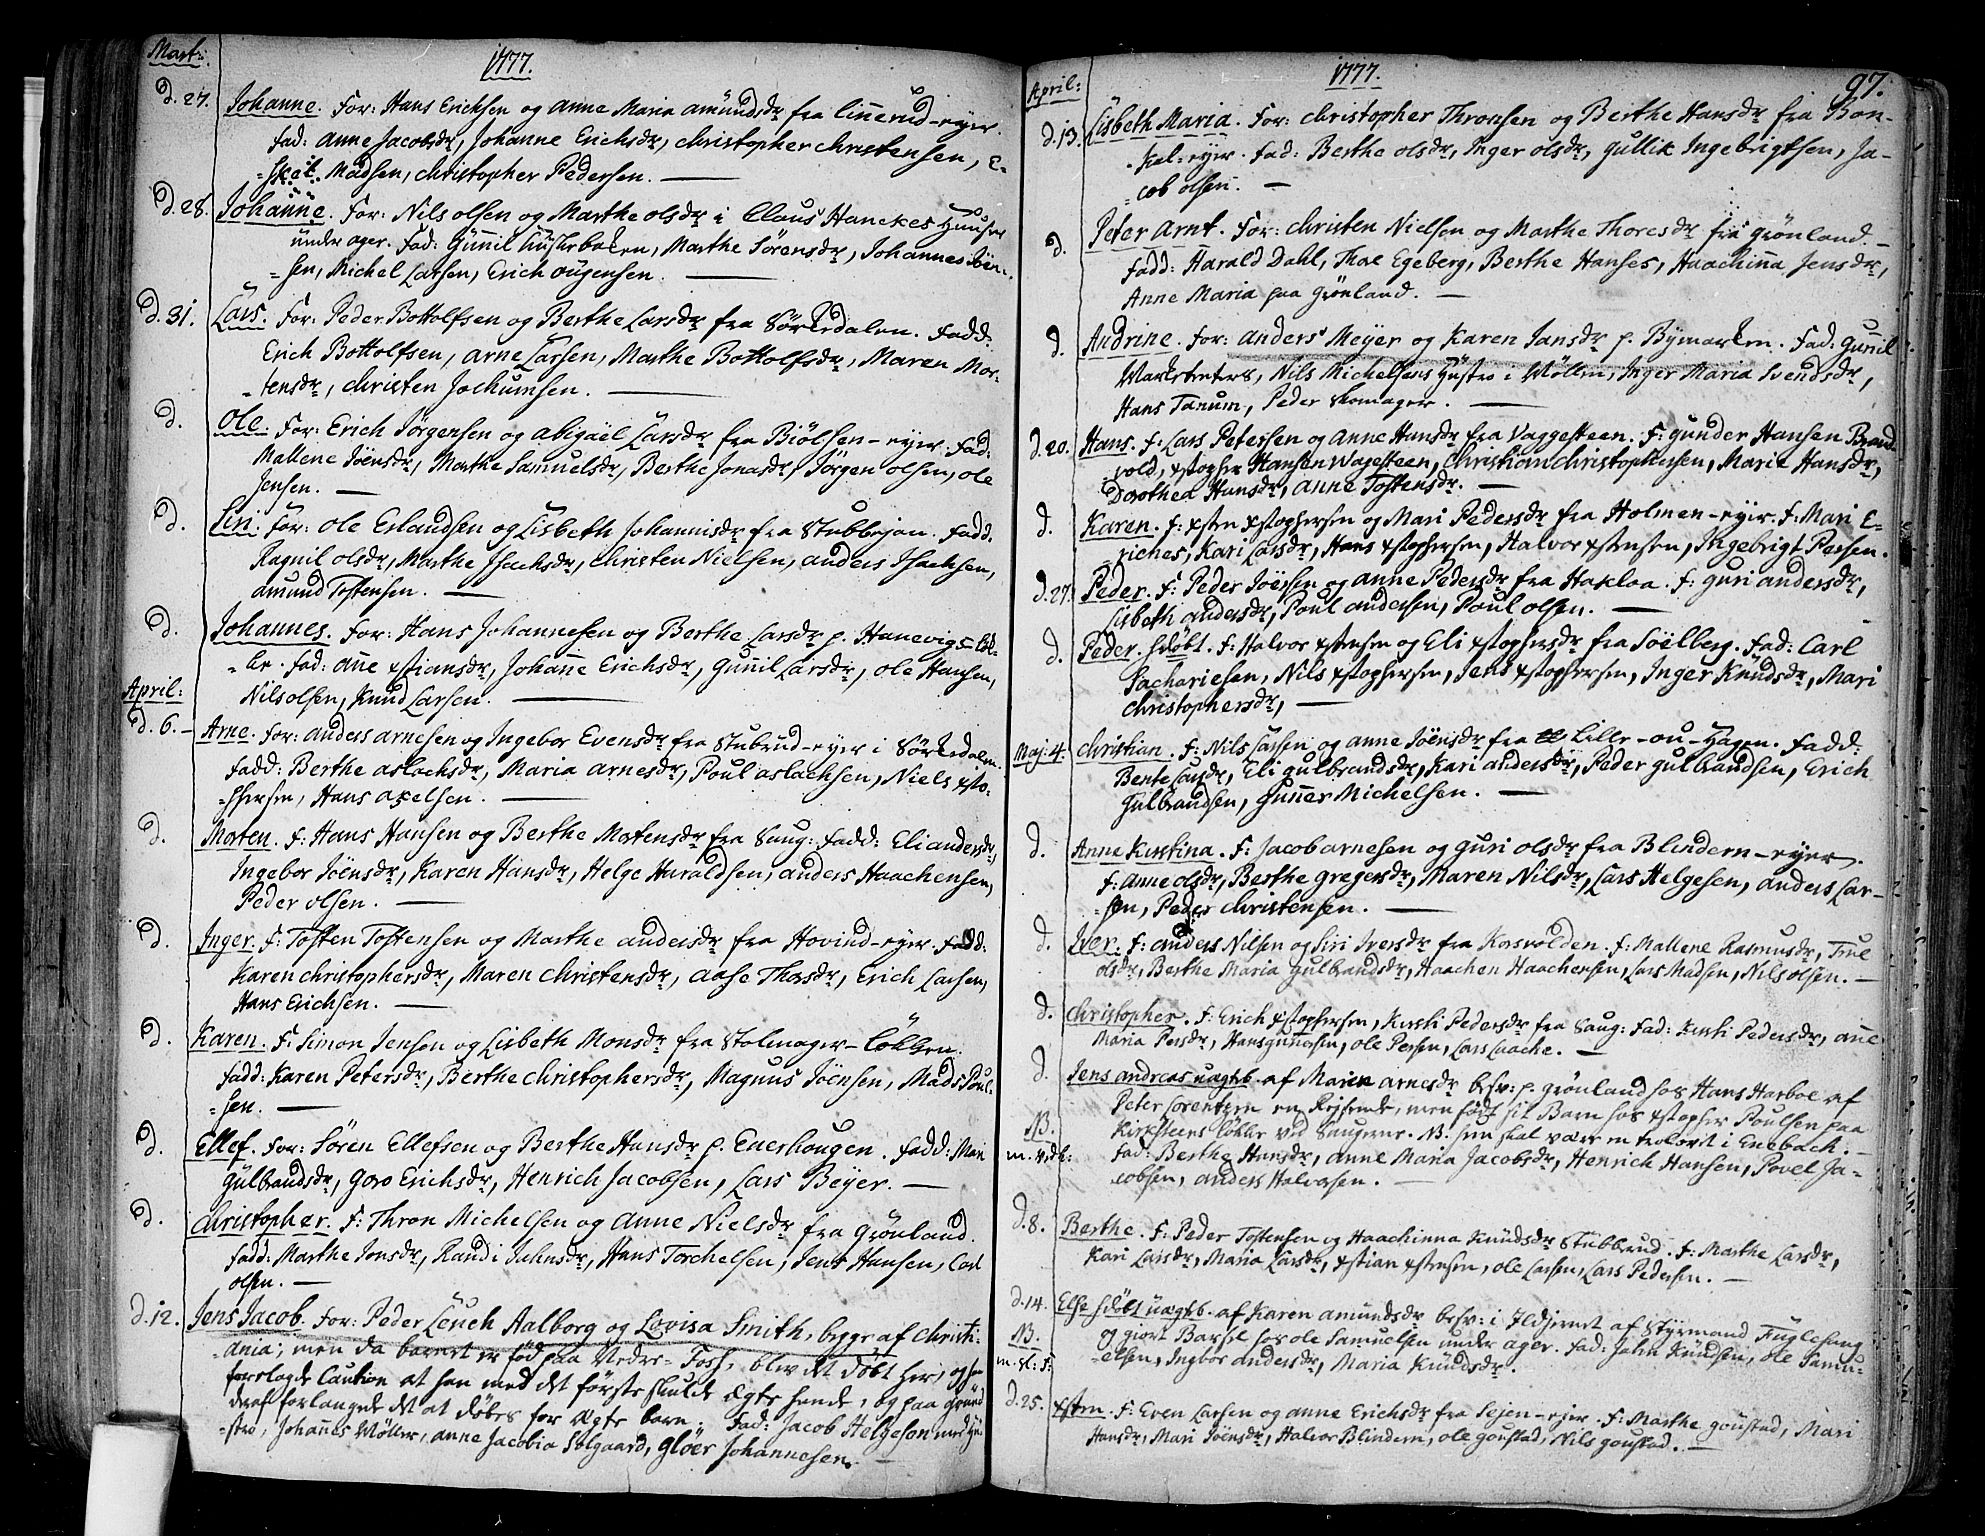 Mart:
1777.
d. 27. Johanne. For: Hans Erichsen og Anne Maria Amundsdr fra Linnerud-eyer.
Fad: Anne Jacobsdr, Johanne Erichsdr, Christopher Christensen, E-
-skel Madsen, Christopher Pedersen. —
d. 28. Johanne. For: Nils Olsen og Marthe Olsdr i Claus Hanckes Huuser
under ager. Fad: Gunnil Marthe Sörensdr, Johannes
-sen, Michel Larsen, Erich —
d. 31. Lars. For: Peder Bottolfsen og Berthe Larsdr fra Sörkedalen. Fadd:
Erich Bottolfsen, Arne Larsen, Marthe Bottolfsdr, Maren Mor-
-tensdr, Christen Jochumsen. —
d. Ole. For: Erich Jörgensen og Abigaël Larsdr fra Biölsen-eyer. Fad:
Mallene Jöensdr, Marthe Samuelsdr, Berthe Jonasdr, Jörgen Olsen, Ole
Jensen. —
d. Siri. For: Ole Erlandsen og Lisbeth Johannisdr fra Stubberjan. Fadd.
Ragnil Olsdr, Marthe Isachsdr, Christen Nielsen, Anders Isachsen,
Amund Tostensen. —
d. Johannes. For: Hans Johannesen og Berthe Larsdr p. Hanevigs-Löc-
-ke. Fad: Anne xstiansdr, Johanne Erichsdr, Gunnil Larsdr, Ole Hansen,
April: Nils Olsen, Knud Larsen. —
d. 6. Arne. For: Anders Arnesen og Ingebor Evensdr fra Stubrud-eyer i Sörkedalen.
Fadd: Berthe Aslachsdr, Maria Arnesdr, Poul Aslachsen, Niels xsto-
-phersen, Hans Axelsen. —
d. Morten. F: Hans Hansen og Berthe Mortensdr fra Saug: Fadd: Eli Andersdr,
Ingebor Jöensdr, Karen Hansdr, Helge Haraldsen, Anders Haachensen,
Peder Olsen. —
d. Inger. F: Tosten Tostensen og Marthe Andersdr fra Hovind-eyer. Fadd:
Karen Christophersdr, Maren Christensdr, Aase Thorsdr, Erich Larsen,
Hans Erichsen. —
d. Karen. F: Simon Jensen og Lisbeth Monsdr fra Stolmager-Lökken.
Fadd: Karen Petersdr, Berthe Christophersdr, Magnus Jöensen, Mads Poul-
-sen. —
d. Ellef. For: Sören Ellefsen og Berthe Hansdr p. Enerhougen. Fadd: Mari
Gulbrandsdr, Goro Erichsdr, Henrich Jacobsen, Lars Beyer. —
d. Christopher. F: Thron Michelsen og Anne Nielsdr fra Grönland.
Fadd: Marthe Jonsdr, Randi Juhnsdr, Hans Torchelsen, Jens Hansen, Carl
Olsen. —
d. 12. Jens Jacob. For: Peder Leuch Aalborg og Lovisa Smith, begge af Christi-
-ania; men da barnet er föd paa Nedre-Foss, blev det döbt her, og han
forelagde Caution at han med det förste skulde ægte hende, og paa grund
deraf forlangede det at döbes for Ægte barn. Fad: Jacob Helgeson med Hu-
-stro, Johannes Möller, Anne Jacobia Solgaard, Glöer Johannesen.
April:
1777.
97.
d. 13. Lisbeth Maria. For: Christopher Thronsen og Berthe Hansdr fra Bon-
-kal-eyer. Fad: Berthe Olsdr, Inger Olsdr, Gullik Ingebrigtsen, Ja-
-cob Olsen. —
d. Peter Arnt. For: Christen Nielsen og Marthe Thoresdr fra Grönland. —
Fadd: Harald Dahl, Thoe Egeberg, Berthe Hanses, Haachinna Jensdr,
Anne Maria paa Grönland. —
d. Andrine. For: Anders Meyer og Karen Jansdr p. Bymarken. Fad: Gunil
Nils Michelsens Hustro i Möllen, Inger Maria Svendsdr,
Hans Tanum, Peder Skomager. —
d. 20. Hans. F: Lars Petersen og Anne Hansdr fra Vaggesteen. F: Gunder Hansen Brand-
vold, xstopher Hansen Wagesteen, Christian Christophersen, Marie Hansdr,
Dorothea Hansdr, Anne Tostensdr. —
d. Karen. F: xsten xstophersen og Mari Pedersdr fra Holmen-eyer. F: Mari E-
riches, Kari Larsdr, Hans xstophersen, Halvor xstensen, Ingebrigt Persen.
d. 27. Peder. F: Peder Joensen og Anne Pedersdr fra Hakloa. F: Guri Andersdr,
Lisbeth Andersdr, Poul Andersen, Poul Olsen. —
d. Peder. hdöbt. F: Halvor xstensen og Eli xstophersdr fra Soelberg. Fad: Carl
Sachariesen, Nils xstophersen, Jens xstophersen, Inger Knudsdr, Mari
Christophersdr, —
Maj: 4. Christian. F: Nils Larsen og Anne Jöensdr fra Lille-ou-Hagen. Fadd:
Bente Larsdr, Eli Gulbrandsdr, Kari Andersdr, Peder Gulbrandsen, Erich
Gulbrandsen, Gunner Michelsen. —
d. Anne Kirstina. F: Jacob Arnesen og Guri Olsdr fra Blindern-eyer.
F: Anne Olsdr, Berthe Gregersdr, Maren Nilsdr, Lars Helgesen, Anders Lar-
-sen, Peder Christensen. —
d. Iver. F: Anders Nilsen og Siri Iversdr fra Korsvolden. F: Mallene Rasmusdr, True
Olsdr, Berthe Maria Gulbrandsdr, Haachen Haachensen, Lars Madsen, Nils Olsen. —
d. Christopher. F: Erich xstophersen, Kirsti Pedersdr fra Saug: Fad: Kirsti Pedersdr, Anne
Maria Persdr, Hans Gunersen, Ole Persen, Lars Laache. —
d. Jens Andreas uægtb. af Maren Arnesdr besv: p. Grönland hos Hans Harboe af
Peter Lorentzen en Rejsende, men födt sit Barn hos xstopher Poulsen paa
NB. Kirksteens lökke ved Saugerne. NB. hun skal være trolovet i Enebach. —
m. v. d. l: Fad: Berthe Hansdr, Anne Maria Jacobsdr, Henrich Hansen, Povel Ja-
cobsen, Anders Halvorsen. —
d. 8. Berthe. F: Peder Tostensen og Haachinna Knudsdr Stubberud. F: Marthe Larsdr,
Kari Larsdr, Maria Larsdr, xstian xstensen, Ole Larsen, Lars Pedersen. —
d. 14. Else hdöbt uægtb. af Karen Amundsdr besv: i Ildjernet af Styrmand Fuglesang
NB. og giort Barsel hos Ole Samuelsen under ager. Fad: John Knudsen, Ole Samu-
m. st: F: -elsen, Ingbor Andersdr, Maria Knudsdr.
d. 25. xsten. F: Even Larsen og Anne Erichsdr fra Sejen-ejer. F: Marthe Goustad, Mari
Hansdr, Mari Jöensdr, Halvor Blindern, Ole Goustad, Nils Goustad. —